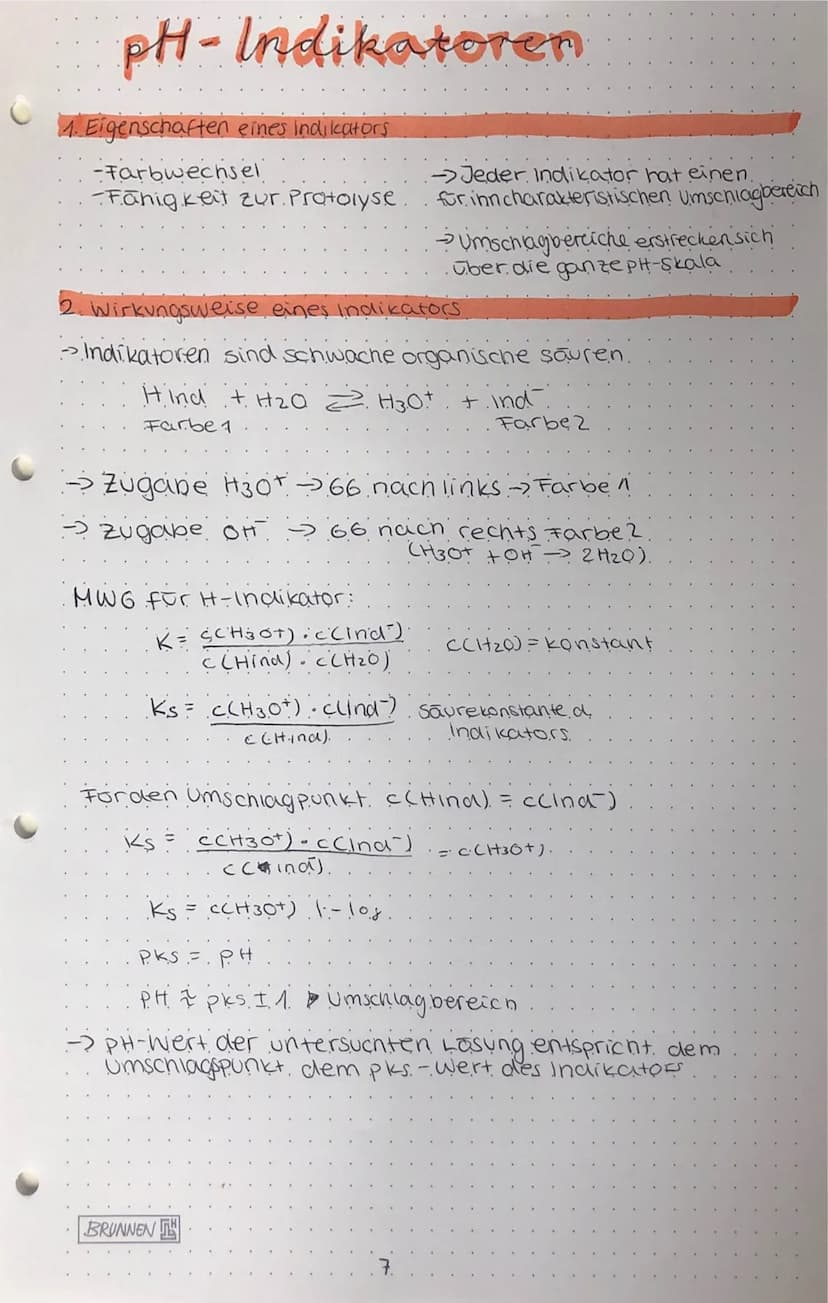 pH-Indikatoren
1. Eigenschaften eines Indikators
-Farbwechsel
-Fähigkeit zur Protolyse
→ Jeder Indikator hat einen
für ihn charakteristischen Umschlagbereich
→ Umschlagbereiche erstrecken sich
über die ganze pH-Skala
2. Wirkungsweise eines Indikators
→ Indikatoren sind schwache organische säuren
HInd + H2O ⇌ H3O+ + ind⁻
Farbe 1 Farbe 2
→ Zugabe H3O+ → GG nach links → Farbe 1
→ Zugabe OH⁻ → GG nach rechts Farbe 2
(H3O+ + OH⁻ → 2H2O)
MWG für H-Indikator:
K = c(H3O+) · c(Ind⁻) / c(Hind) · c(H2O) c(H2O) = konstant
Ks = c(H3O+) · c(Ind⁻) / c(Hind) säurekonstante d
Indikators
Für den Umschlagpunkt c(Hind) = c(Ind⁻)
Ks = c(H3O+) · c(Ind⁻) / c(ind⁻) = c(H3O+)
Ks = c(H3O+) |· -log
pKs = pH
pH ≈ pks ± 1 ▸ Umschlagbereich
→ pH-Wert der untersuchten Lösung entspricht dem
Umschlagspunkt dem pks-Wert des Indikators
BRUNNEN
7